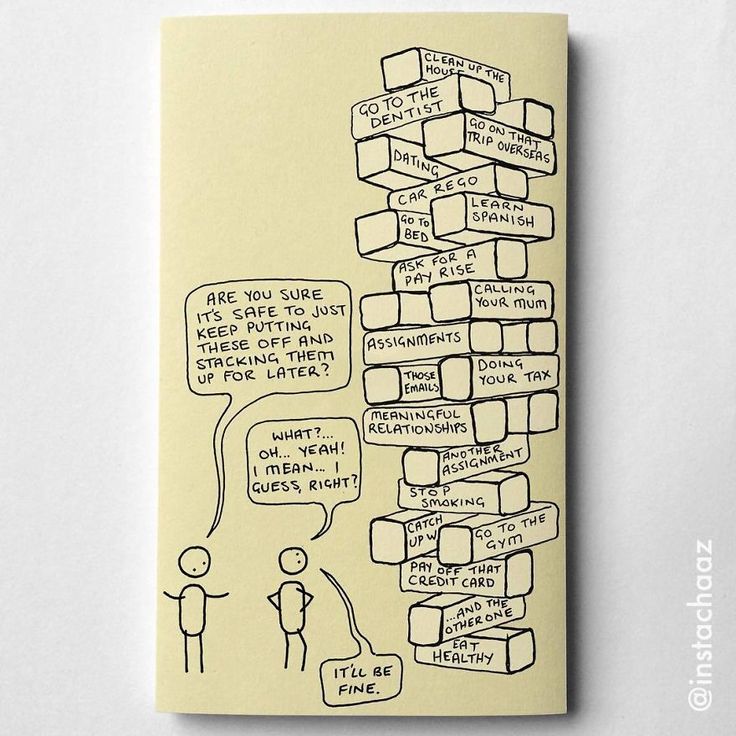 CLEAN UP THE
HOUSE
GO TO THE
DENTIST
GO ON THAT
TRIP OVERSEAS
DATING
CAR REGO
LEARN
SPANISH
GO TO
BED
ASK FOR A
PAY RISE
CALLING
YOUR MUM
ASSIGNMENTS
DOING
YOUR TAX
THOSE
EMAILS
MEANINGFUL
RELATIONSHIPS
ANOTHER
ASSIGNMENT
STOP
SMOKING
CATCH
UP W
GO TO THE
GYM
PAY OFF THAT
CREDIT CARD
...AND THE
OTHER ONE
EAT
HEALTHY
ARE YOU SURE
IT'S SAFE TO JUST
KEEP PUTTING
THESE OFF AND
STACKING THEM
UP FOR LATER?
WHAT?...
OH... YEAH!
I MEAN... I
GUESS, RIGHT?
IT'LL BE
FINE.
@instachaaz